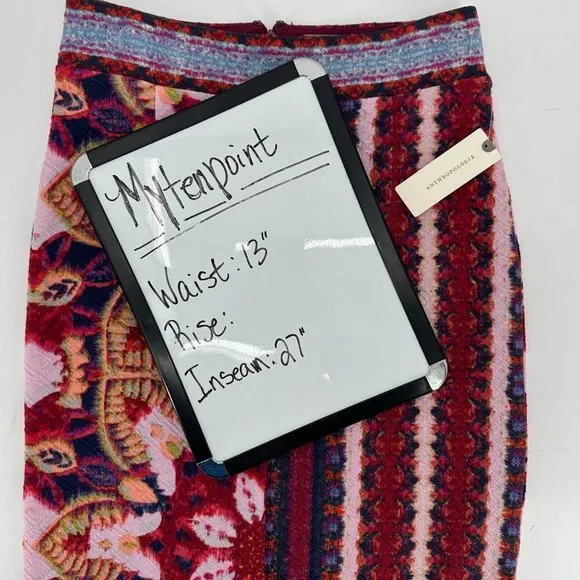 Mytenpoint
ANTHROPOLOGIE
Waist: 13"
Rise:
Inseam: 27"